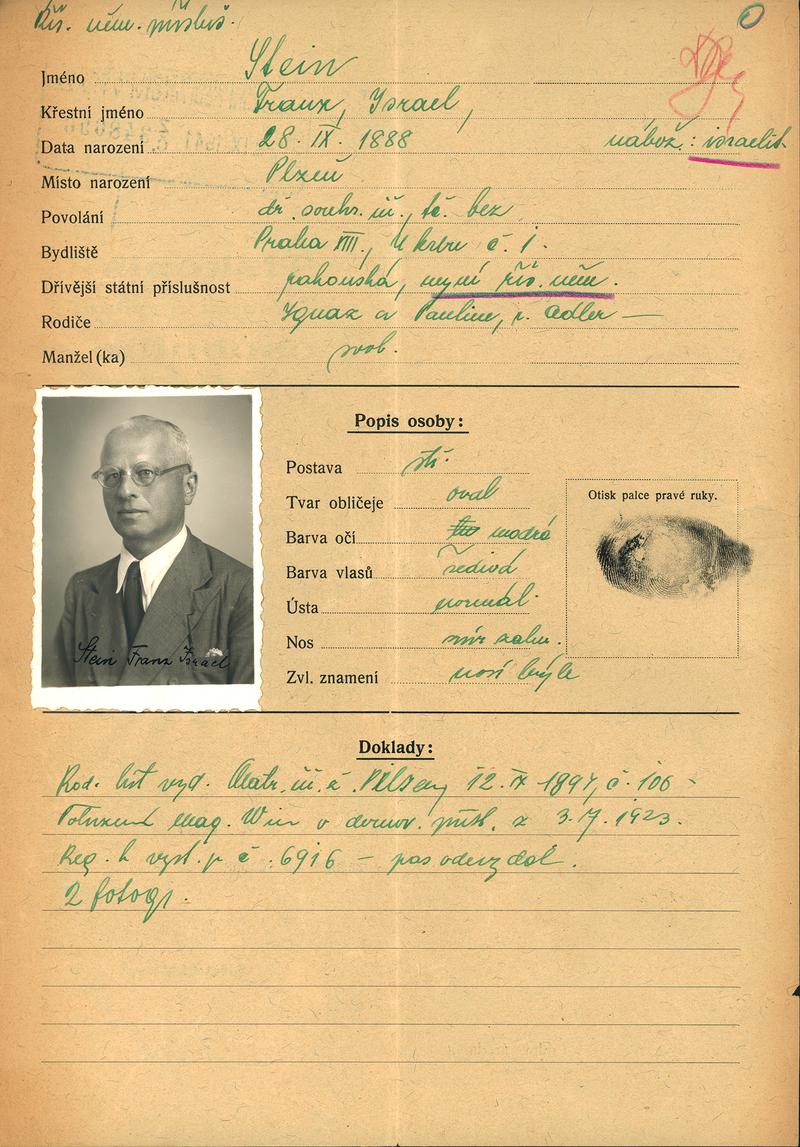 Říš. něm. přísluš.
Jméno Stein
Křestní jméno Franz, Israel,
Data narození 28. IX. 1888 nábož.: israelit.
Místo narození Plzeň
Povolání bez
Bydliště Praha XIII., č. 1.
Dřívější státní příslušnost nyní říš. něm.
Rodiče Ignaz a Pauline, r. Adler —
Manžel (ka) svob.
Popis osoby:
Postava stř.
Tvar obličeje oval
Otisk palce pravé ruky.
Barva očí modré
Barva vlasů šedivá
Ústa normál.
Nos
Zvl. znamení nosí brýle
Stein Franz Israel
Doklady:
Rod. list vyd. Matr. Pilsen 12. IX 1897, č. 106 -
Mag. Wien o domov. přísl. z 1923.
Reg. k vyst. p. č. 6916 - pas odevzdal.
2 fotogr.